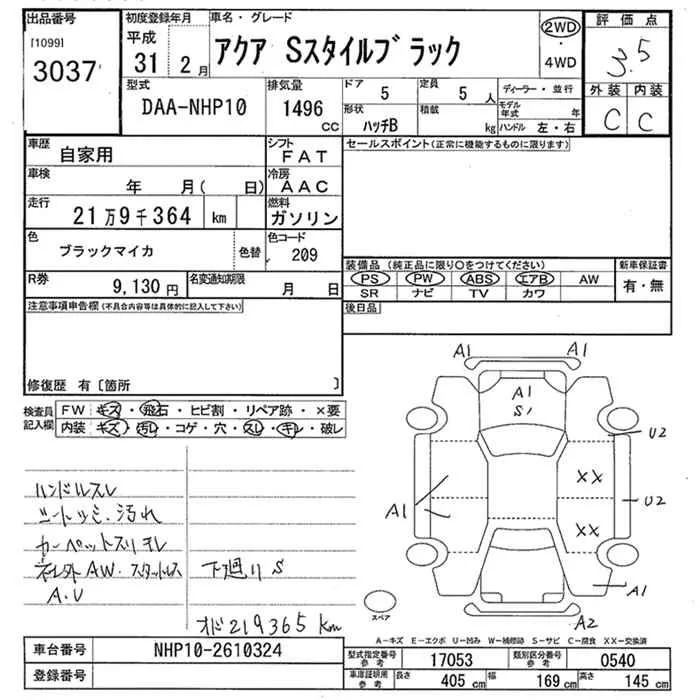 出品番号
[1099]
3037
初度登録年月
平成
31 2月
車名・グレード
アクア Sスタイルブラック
2WD
・
4WD
評価点
3.5
外装 内装
C C
型式
DAA-NHP10
排気量
1496
cc
ドア
5
定員
5 人
ディーラー・並行
モデル年式 年
形状
ハッチB
積載
kg
ハンドル 左・右
車歴
自家用
シフト
FAT
車検
年 月( 日)
冷房
AAC
走行
21万9千364 km
燃料
ガソリン
色
ブラックマイカ
色替
色コード
209
R券
9,130 円
名変通知期限
月 日
セールスポイント(正常に機能するものに限ります)
装備品 (純正品に限り○をつけてください)
PS PW ABS エアB AW
SR ナビ TV カワ
新車保証書
有・無
後日品
注意事項申告欄(不具合内容等は具体的に記入して下さい)
修復歴 有〔箇所 〕
検査員記入欄
FW キズ・飛石・ヒビ割・リペア跡・×要
内装 キズ・汚レ・コゲ・穴・スレ・キレ・破レ
ハンドルスレ
シートシミ・汚れ
カーペットスリキレ
ネレ外AW・スタッドレス
A.U
下廻りS
オド219365km
A1 A1
A1
S1
U2
XX
U2
A1
XX
A1
A2
スペア
A-キズ E-エクボ U-凹み W-補修跡 S-サビ C-腐食 XX-交換済
車台番号
NHP10-2610324
登録番号
型式指定番号
参考
17053
類別区分番号
参考
0540
車庫証明用
参考
長さ
405 cm
幅
169 cm
高さ
145 cm